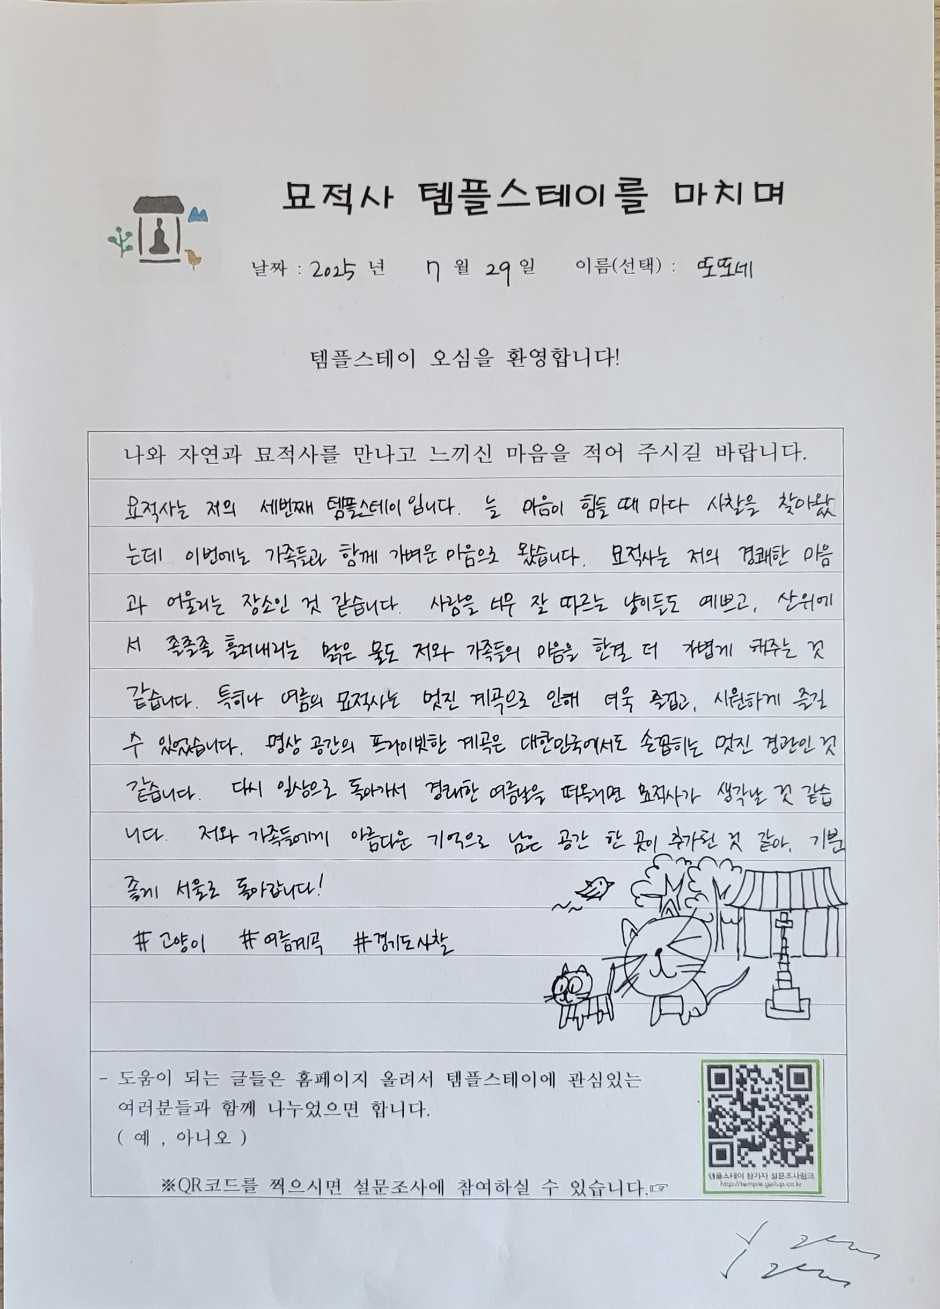 묘적사 템플스테이를 마치며
날짜 : 2025 년 7 월 29 일 이름(선택) : 또또네
템플스테이 오심을 환영합니다!
나와 자연과 묘적사를 만나고 느끼신 마음을 적어 주시길 바랍니다.
묘적사는 저의 세번째 템플스테이입니다. 늘 마음이 힘들 때 마다 사찰을 찾아왔
는데 이번에는 가족들과 함께 가벼운 마음으로 왔습니다. 묘적사는 저의 경쾌한 마음
과 어울리는 장소인 것 같습니다. 사람을 너무 잘 따르는 냥이들도 예쁘고, 산위에
서 졸졸졸 흘러내리는 맑은 물도 저와 가족들의 마음을 한결 더 가볍게 해주는 것
같습니다. 특히나 여름의 묘적사는 멋진 계곡으로 인해 더욱 즐겁고, 시원하게 즐길
수 있었습니다. 명상 공간의 프라이빗한 계곡은 대한민국에서도 손꼽히는 멋진 경관인 것
같습니다. 다시 일상으로 돌아가서 경쾌한 여름날을 떠올리면 묘적사가 생각날 것 같습
니다. 저와 가족들에게 아름다운 기억으로 남은 공간 한 곳이 추가된 것 같아, 기분
좋게 서울로 돌아갑니다!
#고양이 #여름계곡 #경기도사찰
- 도움이 되는 글들은 홈페이지 올려서 템플스테이에 관심있는
여러분들과 함께 나누었으면 합니다.
( 예 , 아니오 )
※QR코드를 찍으시면 설문조사에 참여하실 수 있습니다.☞
템플스테이 참가자 설문조사링크
http://temple.gallup.co.kr